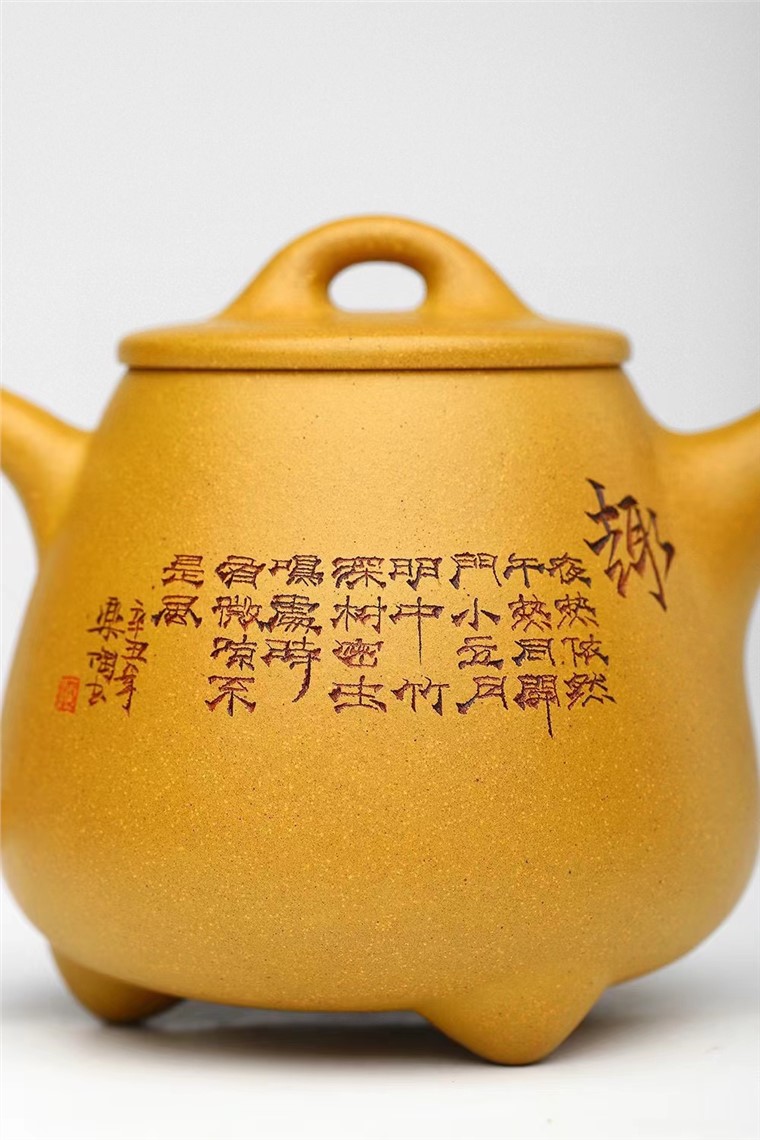 趣
夜熱依然
午熱同開
門小立月
明中竹
深树密虫
鳴處時
有微涼不
是風
辛丑年
樂陶书